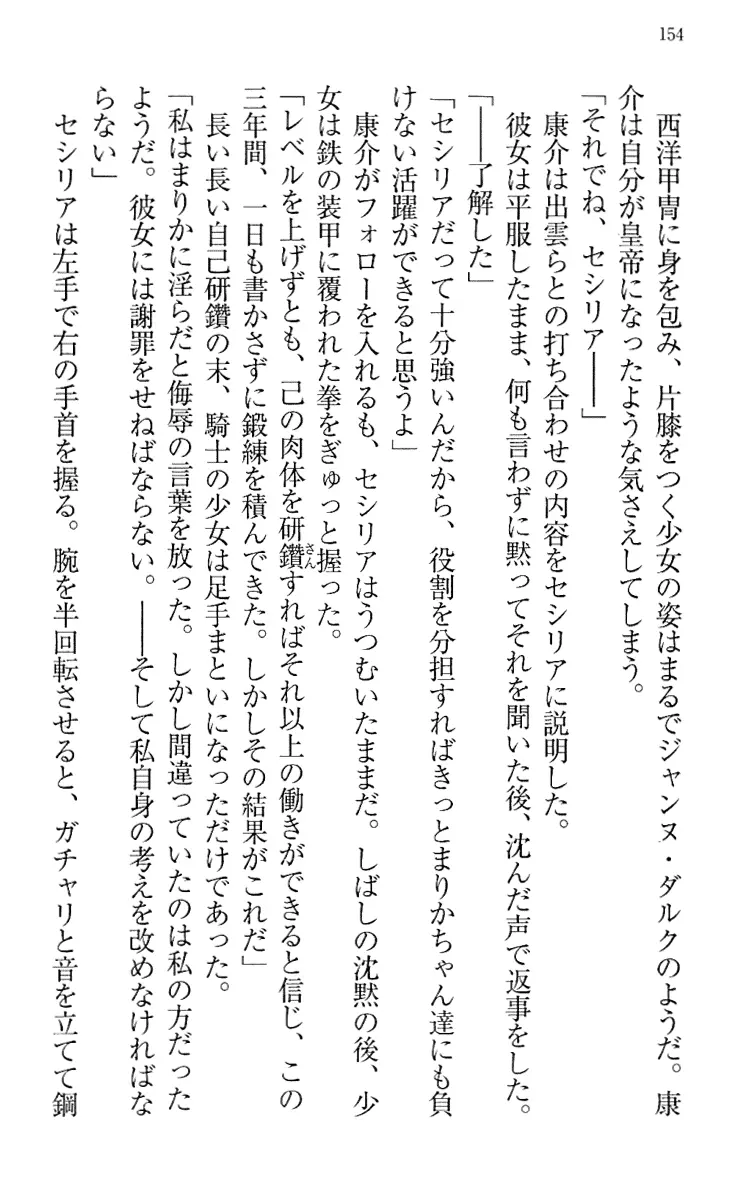 154
西洋甲冑に身を包み、片膝をつく少女の姿はまるでジャンヌ・ダルクのようだ。康
介は自分が皇帝になったような気さえしてしまう。
「それでね、セシリア――」
康介は出雲らとの打ち合わせの内容をセシリアに説明した。
彼女は平服したまま、何も言わずに黙ってそれを聞いた後、沈んだ声で返事をした。
「――了解した」
「セシリアだって十分強いんだから、役割を分担すればきっとまりかちゃん達にも負
けない活躍ができると思うよ」
康介がフォローを入れるも、セシリアはうつむいたままだ。しばしの沈黙の後、少
女は鉄の装甲に覆われた拳をぎゅっと握った。
「レベルを上げずとも、己の肉体を研鑽すればそれ以上の働きができると信じ、この
三年間、一日も書かさずに鍛練を積んできた。しかしその結果がこれだ」
長い長い自己研鑽の末、騎士の少女は足手まといになっただけであった。
「私はまりかに淫らだと侮辱の言葉を放った。しかし間違っていたのは私の方だった
ようだ。彼女には謝罪をせねばならない。――そして私自身の考えを改めなければな
らない」
セシリアは左手で右の手首を握る。腕を半回転させると、ガチャリと音を立てて鋼